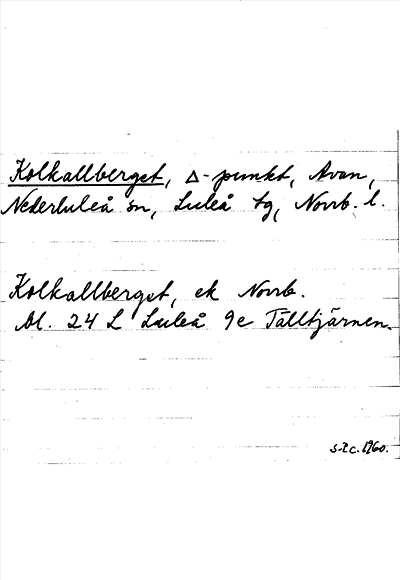 Kolkallberget, Δ-punkt, Avan,
Nederluleå sn, Luleå tg, Norrb. l.
Kolkallberget, ek Norrb.
bl. 24 L Luleå 9e Tälltjärnen.
c. 1960.